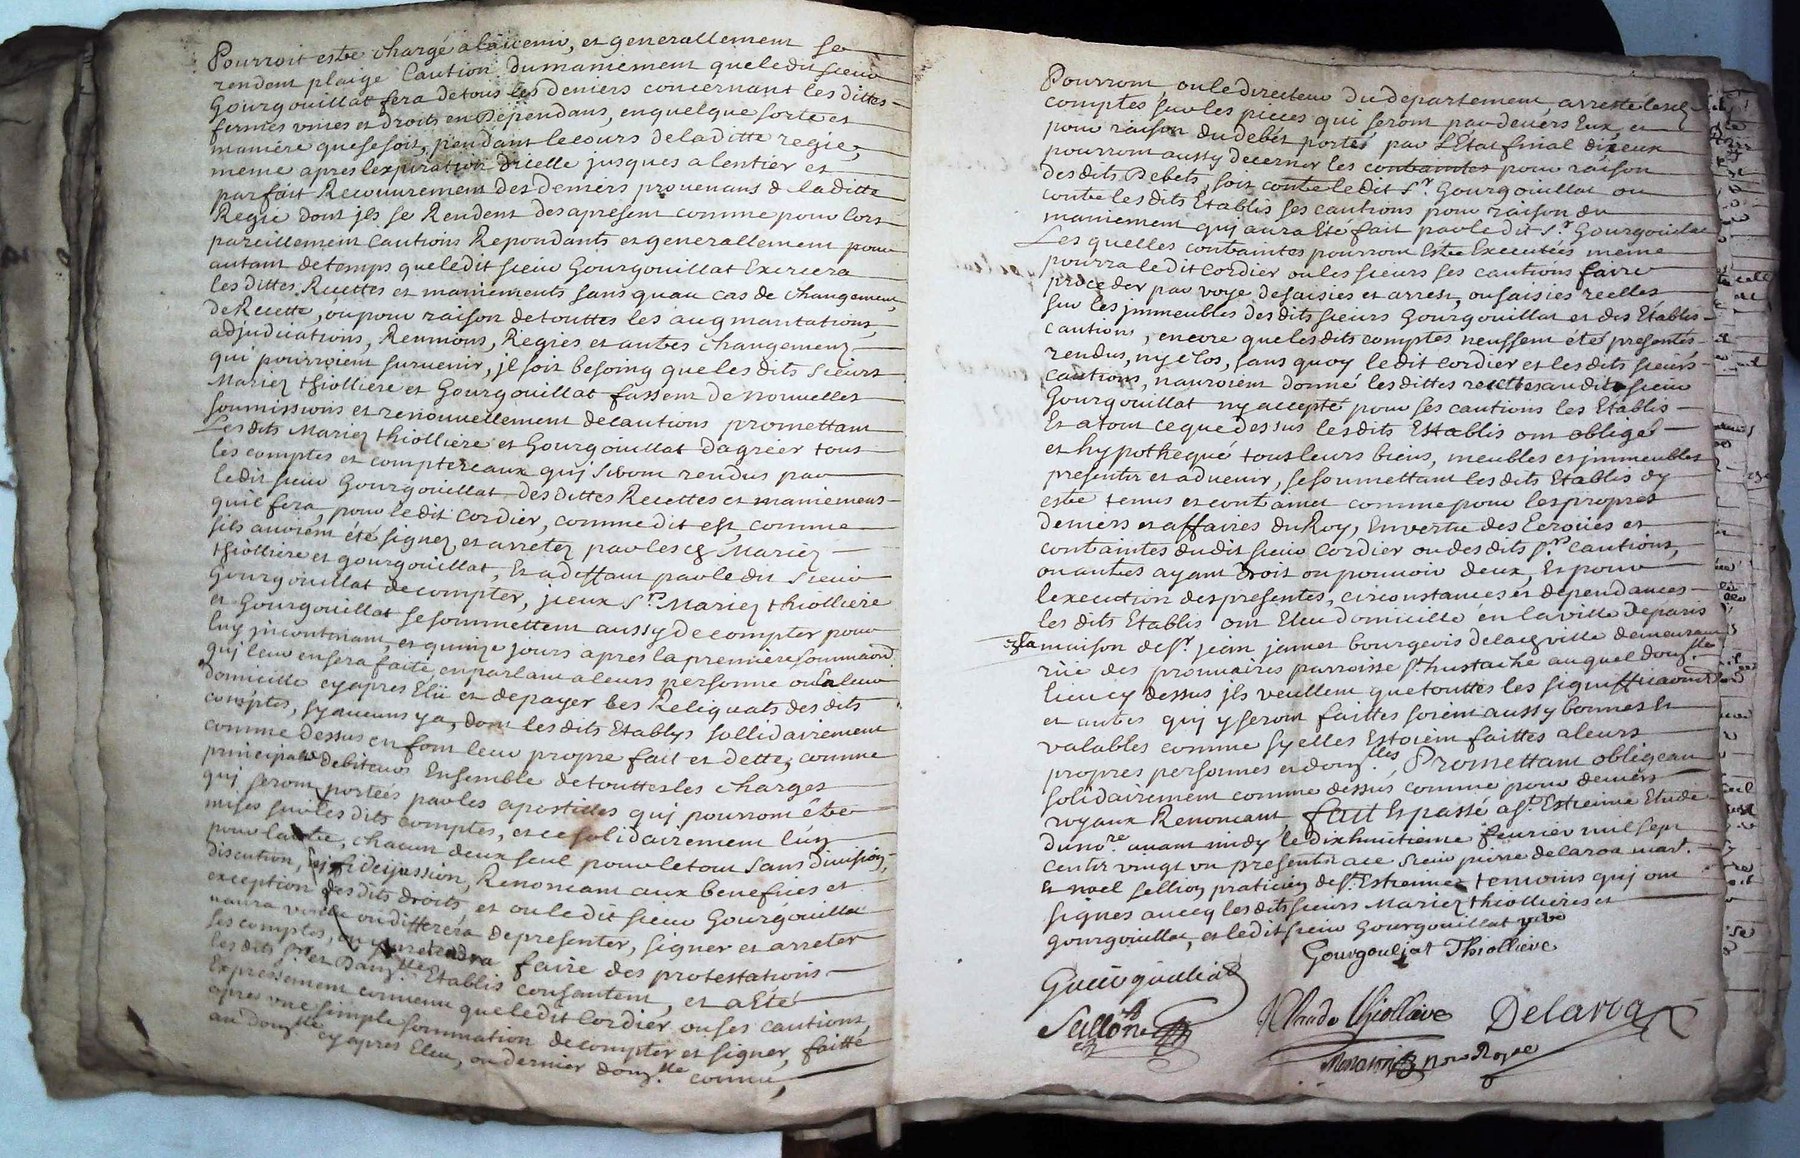 Pourroit estre chargé alavenir, et generallement se
rendent plaige Caution dumaniement queledit sieur
Gourgouillat fera detous les deniers concernant les dittes
fermes unies et droits en Dépendans, enquelque sorte et
maniere quesesoit, pendant lecours deladitte regie,
meme apres lexpiration dicelle jusques alentier et
parfait Recouvrement des deniers provenans de laditte
Regie dont jls se Rendent desapresent comme pour lors
pareillement Cautions Repondants et generallement pour
autant detemps queledit sieur Gourgouillat Exercera
les dittes Recettes et maniements sans quau cas de changement
de Recette, ou pour raison detouttes les augmantations,
adjudications, Reunions, Regies et autres changemens
qui pourroient survenir, jl soit besoing que les dits sieurs
Mariez thiolliere et Gourgouillat fassent de nouvelles
soumissions et renouvellement decautions promettant
Les dits Mariez thiolliere et Gourgouillat dagréer tous
les comptes et comptereaux qui seront rendus par
ledit sieur Gourgouillat des dittes Recettes et maniemens
quil fera, pour le dit Cordier, comme dit est, comme
sils avoient été signez et arretez par les Mariez
thiolliere et gourgouillat, Et adeffaut par le dit sieur
Gourgouillat decompter, jceux Srs Mariez thiolliere
et Gourgouillat sesoummettent aussy de compter pour
luy jncontinant, et quinze jours apres la premiere sommation
qui leur en sera faite, en parlant aleurs personne ou a leur
domicille cyapres Elû et depayer les Reliquats des dits
comptes, sy aucuns y a, dont les dits Etablys sollidairement
comme dessus en font leur propre fait et dette, comme
principaux debiteurs Ensemble detouttes les charges
qui seront portées par les apostilles qui pourront être
mises sur les dits comptes, et ce solidairement lun
pour lautre, chacun deux seul pour le tout sans division,
discution, fidejussion, Renoncant aux benefices et
exception des dits droits, et ou le dit sieur Gourgouillat
naura voulu ou differera de presenter, signer et arreter
ses comptes, ou pretendra faire des protestations
les dits Srs et Etablis consentent, et a Eté
Expressement convenu que le dit Cordier ou ses cautions,
apres une simple sommation de compter et signer, faitte
au domlle cyapres Elu, ou dernier domlle connu,
Pourront, ou le directeur du departement arresté lesd
comptes sur les pieces qui seront pardevers Eux, et
pour raison du debét portés par LÉtat final diceux
pourront aussy decerner les contraintes pour raison
Desdits Debets, soit contre le dit Sr Gourgouillat ou
contre les dits Etablis ses cautions pour raison du
maniement qui aura Eté fait par le dit Sr Gourgouillat
Les quelles contraintes pourront Estre Executées meme
pourra le dit Cordier ou les sieurs ses cautions faire
proceder par voye de saisies et arrest, ou saisies réelles
sur les jmmeubles des dits sieurs Gourgouillat et des Etablis
cautions, encore que les dits comptes neussent été presentés
rendus, ny clos, sans quoy le dit Cordier et les dits sieurs
cautions, nauroient donné les dittes recettes audit sieur
Gourgouillat ny accepté pour ses cautions les Etablis
Et atout ceque dessus les dits Establis ont obligé
et hypothequé tous leurs biens, meubles et jmmeubles
presents et advenir, se soumettant les dits Etablis dy
estre tenus et contraints comme pour les propres
deniers et affaires du Roy, En vertu des Ecroües et
contraintes dudit sieur Cordier ou des dits Srs cautions,
ou autres ayant droit ou pouvoir deux, Et pour
lexecution des presentes, circonstances et dependances
les dits Etablis ont Eleu domicille en la ville de paris
en la maison de Sr jean jannet bourgeois de lad ville demeurant
rüe des prouvaires parroisse St hustache auquel domlle
lieu cy dessus jls veullent que touttes les significations
et autres qui y seront faittes soient aussy bonnes Et
valables comme sy elles Estoient faittes aleurs
propres personnes et domlles Promettant obligeant
solidairement comme dessus comme pour deniers
royaux Renoncant, fait Et passé a St Estienne Etude
du nore avant midy le dix huitieme fevrier mil sept
cents vingt un presents ace sieur pierre delaroa mart
Et noel sellion praticien de St Estienne temoins qui ont
signés avecq les dits sieurs Mariez thiollieres et
gourgouillat, et ledit sieur Gourgouillat
Gourgouliat Thiolliere
Gourgoulliat
Claude thiolliere Delaroa
Sellion
nore Royal